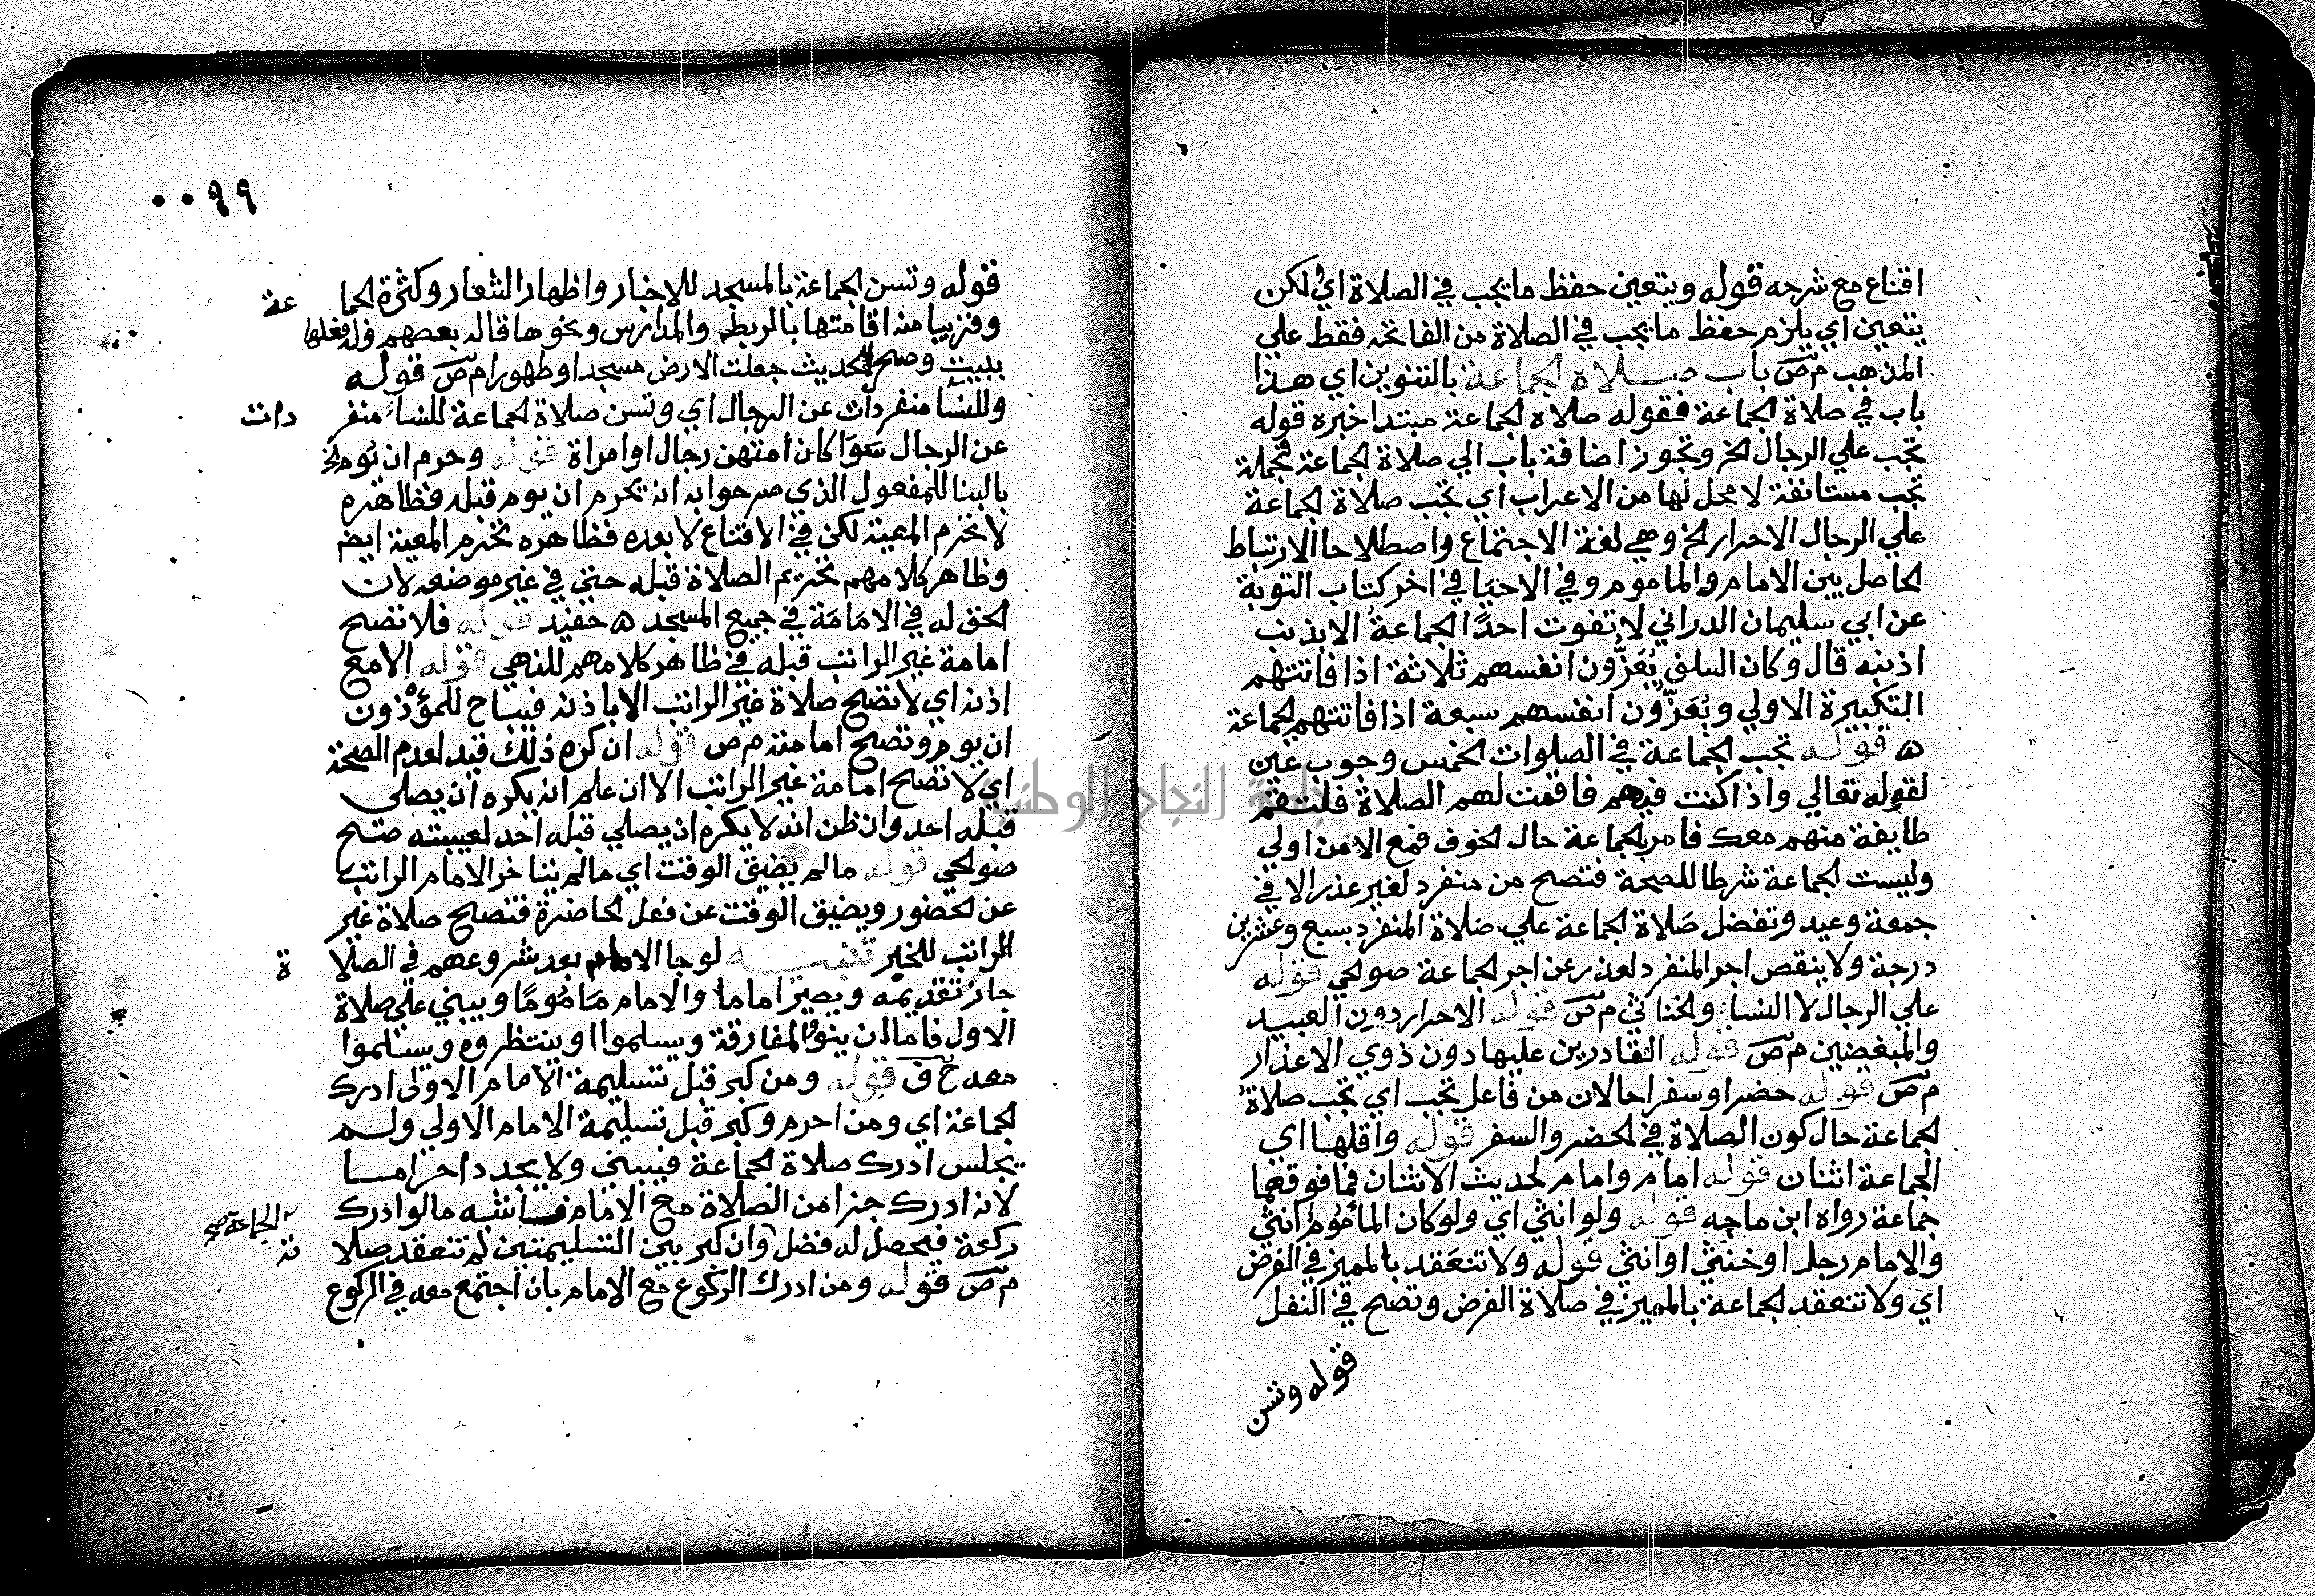 اقناع مع شرحه قوله ويتعين حفظ ما يجب في الصلاة اي لكن
يتعين اي يلزم حفظ ما يجب في الصلاة من الفاتحه فقط علي
المذهب م ص باب صلاة الجماعة بالتنوين اي هذا
باب في صلاة الجماعة فقوله صلاة الجماعة مبتدا خبره قوله
تجب علي الرجال الخ وتجوز اضافة باب الي صلاة الجماعة فجملة
تجب مستانفة لا محل لها من الاعراب اي تجب صلاة الجماعة
علي الرجال الاحرار الخ وهي لغة الاجتماع واصطلاحا الارتباط
الحاصل بين الامام والماموم وفي الاحيا في اخر كتاب التوبة
عن ابي سليمان الدراني لا تفوت احدًا الجماعةُ الا بذنب
اذنبه قال وكان السلف يُعَزُّون انفسهم ثلاثة اذا فاتتهم
التكبيرة الاولي ويُعَزُّون انفسهم سبعة اذا فاتتهم الجماعة
ه قوله تجب الجماعة في الصلوات الخمس وجوب عين
لقوله تعالي واذا كنت فيهم فاقمت لهم الصلاة فلتقم
طايفة منهم معك فامر بالجماعة حال الخوف فمع الامن اولي
وليست الجماعة شرطا للصحة فتصح من منفرد لغير عذر الا في
جمعة وعيد وتفضل صَلاة الجماعة علي صلاة المنفرد بسبع وعشرين
درجة ولا ينقص اجر المنفرد لعذر عن اجر الجماعة صوالحي قوله
علي الرجال لا النسا والخناثي م ص قوله الاحرار دون العبيد
والمبعضين م ص قوله القادرين عليها دون ذوي الاعذار
م ص قوله حضرا وسفرا حالان من فاعل تجب اي تجب صلاة
الجماعة حال كون الصلاة في الحضر والسفر قوله واقلها اي
الجماعة اثنان قوله امام وامام لحديث الاثنان فما فوقهما
جماعة رواه ابن ماجه قوله ولو انثي اي ولو كان الماموم انثي
والامام رجل او خنثي او انثي قوله ولا تنعَقد بالمميز في الفرض
اي ولا تنعقد الجماعة بالمميز في صلاة الفرض وتصح في النفل
قوله وتسن
٠٠٩٩
قوله وتسن الجماعة بالمسجد للاخبار واظهار الشعار وكثرة الجماعة
وقريبا منه اقامتها بالربط والمدارس ونحوها قاله بعضهم وله فعلها
ببيت وصح لحديث جعلت الارض مسجدا وطهورا م ص قوله
وللنسا منفردات عن الرجال اي وتسن صلاة الجماعة للنسا منفردات
عن الرجال سَوَا كان امتهن رجال او امراة قوله وحرم ان يُوم الخ
بالبنا للمفعول الذي صرحوا به انه يحرم ان يوم قبله فظاهره
لا تحرم المعية لكن في الاقناع لا بعده فظاهره تحرم المعية ايض
وظاهر كلامهم تحريم الصلاة قبله حتي في غير موضعه لان
الحق له في الامَامَة في جميع المسجد ه حفيد قوله فلا تصح
امامة غير الراتب قبله في ظاهر كلامهم للنهي قوله الا مع
اذنه اي لا تصح صلاة غير الراتب الا باذنه فيباح للمؤذون
ان يوم وتصح امامته م ص قوله ان كره ذلك قيد لعدم الصحة
اي لا تصح امامة غير الراتب الا ان علم انه يكره ان يصلي
قبله احد وان ظن انه لا يكره ان يصلي قبله احد لغيبته صح
صوالحي قوله ما لم يضيق الوقت اي ما لم يتاخر الامام الراتب
عن الحضور ويضيق الوقت عن فعل الحاضرة فتصح صلاة غير
الراتب للخبر تنبيه لو جا الامام بعد شروعهم في الصلاة
جاز تقديمه ويصير اماما والامام مَامُومًا ويبني علي صلاة
الاول فاما ان ينووا المفارقة ويسلموا او ينتظروه ويسلموا
معه ح ف قوله ومن كبر قبل تسليمة الامام الاولى ادرك
الجماعة اي ومن احرم وكبر قبل تسليمة الامام الاولي ولم
يجلس ادرك صلاة الجماعة فيبني ولا يجدد احراما
لانه ادرك جزا من الصلاة مع الامام فاشبه ما لو ادرك
ركعة فيحصل له فضل الجماعة صح وان كبر بين التسليمتين لم تنعقد صلاته
م ص قوله ومن ادرك الركوع مع الامام بان اجتمع معه في الركوع
جامعة النجاح الوطنية